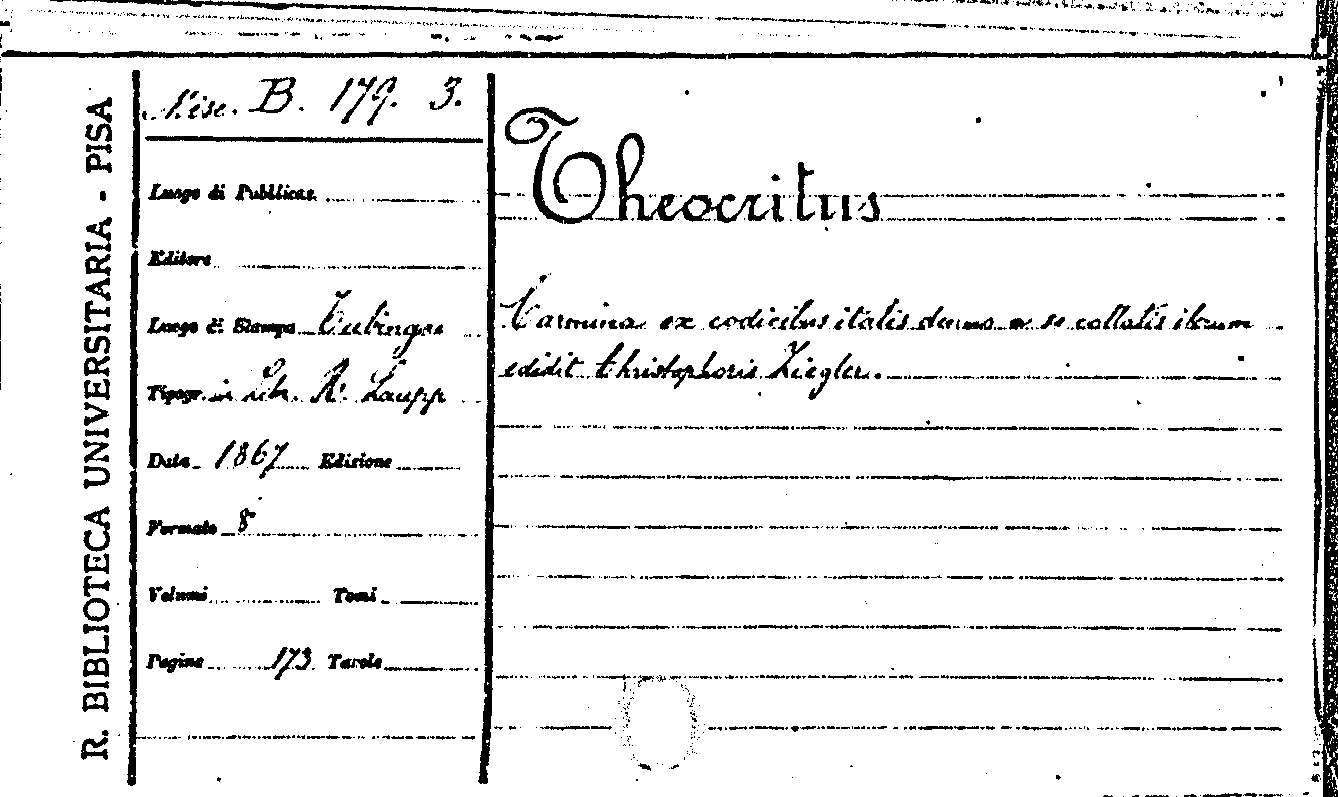 R. BIBLIOTECA UNIVERSITARIA - PISA
Misc. B. 179. 3.
Luogo di Pubblicaz.
Editore
Luogo di Stampa Tubingae
Tipogr. in Libr. H. Laupp
Data 1867 Edizione
Formato 8
Volumi Tomi
Pagine 173 Tavole
Theocritus
Carmina ex codicibus italis denuo a se collatis iterum
edidit Christophoris Ziegler.